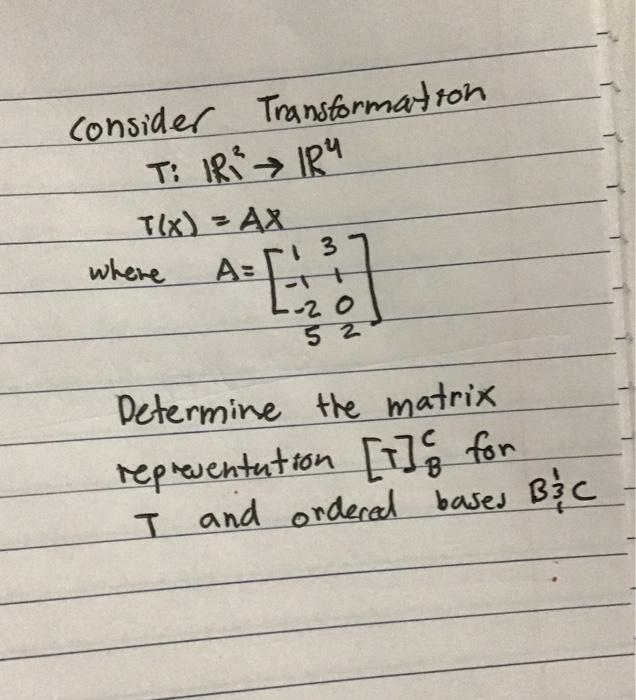 Consider Transformation
T: ℝ² → ℝ⁴
T(x) = AX
where A = [1 3
-1 1
-2 0
5 2]
Determine the matrix
representation [T]ᶜ_B for
T and ordered bases B & C